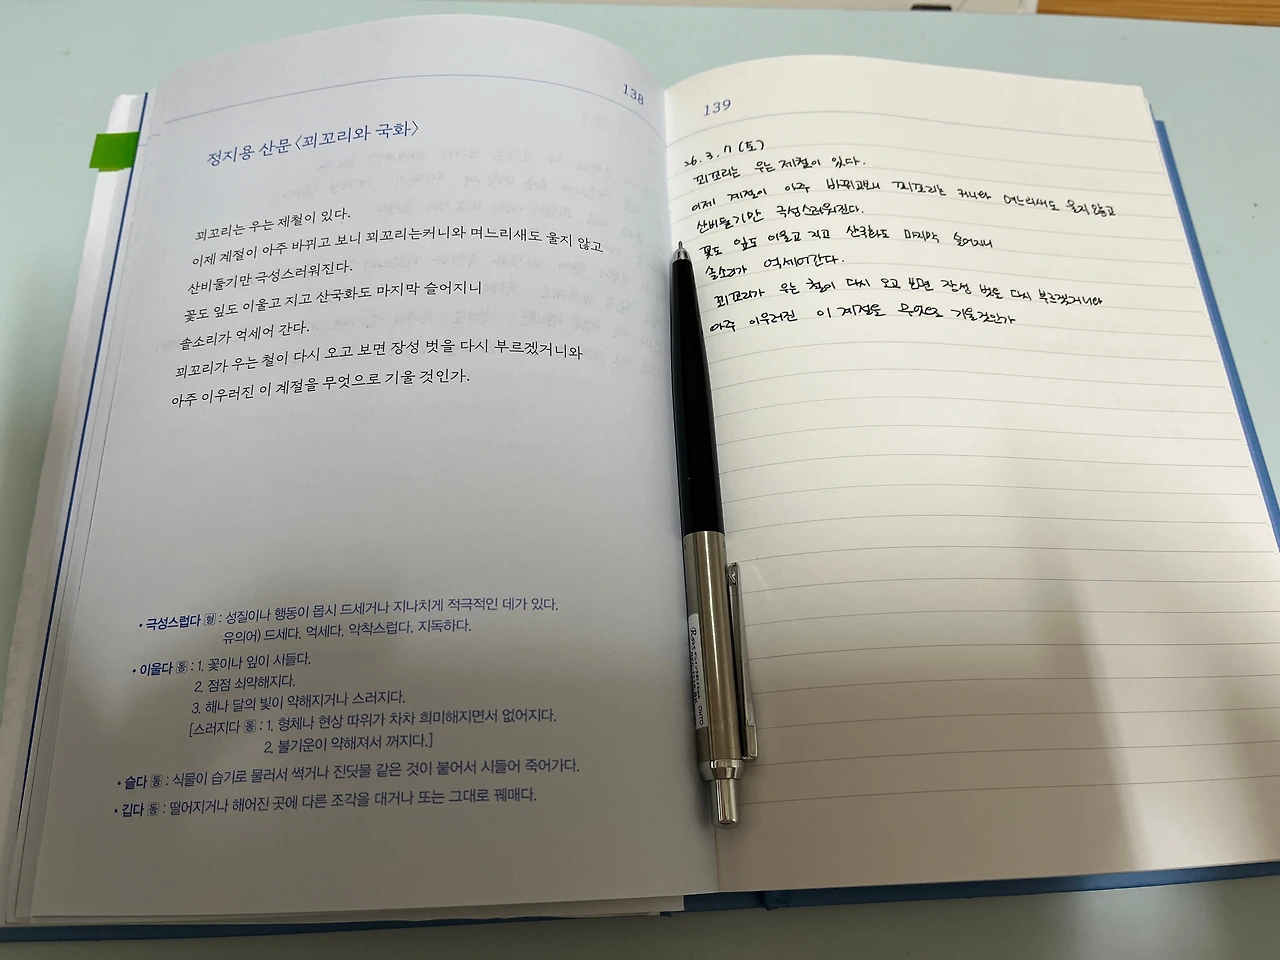 138
정지용 산문〈꾀꼬리와 국화〉
꾀꼬리는 우는 제철이 있다.
이제 계절이 아주 바뀌고 보니 꾀꼬리는커니와 며느리새도 울지 않고
산비둘기만 극성스러워진다.
꽃도 잎도 이울고 지고 산국화도 마지막 슬어지니
솔소리가 억세어 간다.
꾀꼬리가 우는 철이 다시 오고 보면 장성 벗을 다시 부르겠거니와
아주 이우러진 이 계절을 무엇으로 기울 것인가.
• 극성스럽다 형 : 성질이나 행동이 몹시 드세거나 지나치게 적극적인 데가 있다.
유의어) 드세다. 억세다. 악착스럽다. 지독하다.
• 이울다 동 : 1. 꽃이나 잎이 시들다.
2. 점점 쇠약해지다.
3. 해나 달의 빛이 약해지거나 스러지다.
[스러지다 동 : 1. 형체나 현상 따위가 차차 희미해지면서 없어지다.
2. 불기운이 약해져서 꺼지다.]
• 슬다 동 : 식물이 습기로 물러서 썩거나 진딧물 같은 것이 붙어서 시들어 죽어가다.
• 깁다 동 : 떨어지거나 해어진 곳에 다른 조각을 대거나 또는 그대로 꿰매다.
139
26.3.7(토)
꾀꼬리는 우는 제철이 있다.
이제 계절이 아주 바뀌고보니 꾀꼬리는 커니와 며느리새도 울지않고
산비둘기만 극성스러워진다.
꽃도 잎도 이울고 지고 산국화도 마지막 슬어지니
솔소리가 억세어간다.
꾀꼬리가 우는 철이 다시 오고 보면 장성 벗을 다시 부르겠거니와
아주 이우러진 이 계절을 무엇으로 기울것인가
OHTO